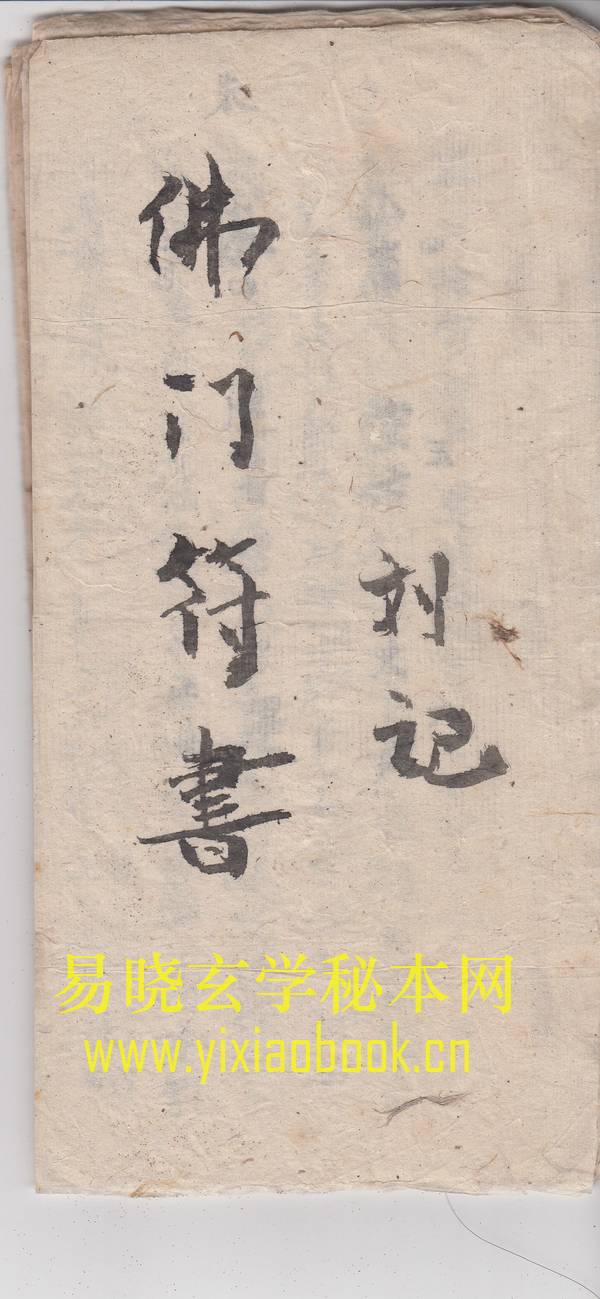 刘记
佛门符書
易晓玄学秘本网
www.yixiaobook.cn